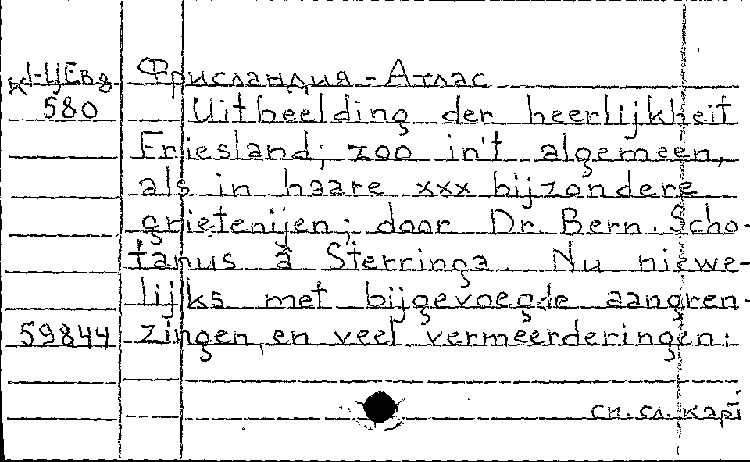 К1-ЦЕвд Фрисландия - Атлас
580 Uitbeelding der heerlijkheit
Friesland; zoo in't algemeen,
als in haare xxx bijzondere
grietenijen; door Dr. Bern. Scho-
tanus â Sterringa. Nu niewe-
lijks met bijgevoegde aangren-
59844 zingen, en veel vermeerderingen:
см. сл. карт